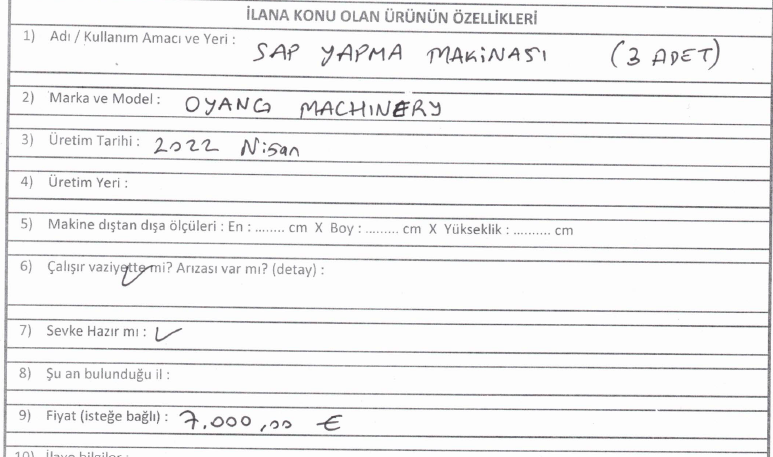 İLANA KONU OLAN ÜRÜNÜN ÖZELLİKLERİ
1) Adı / Kullanım Amacı ve Yeri : SAP YAPMA MAKİNASI (3 ADET)
2) Marka ve Model : OYANG MACHINERY
3) Üretim Tarihi : 2022 Nisan
4) Üretim Yeri :
5) Makine dıştan dışa ölçüleri : En : ........ cm X Boy : ......... cm X Yükseklik : .......... cm
6) Çalışır vaziyette mi? Arızası var mı? (detay) : ✓
7) Sevke Hazır mı : ✓
8) Şu an bulunduğu il :
9) Fiyat (isteğe bağlı) : 7.000,00 €
10) İlave bilgiler :